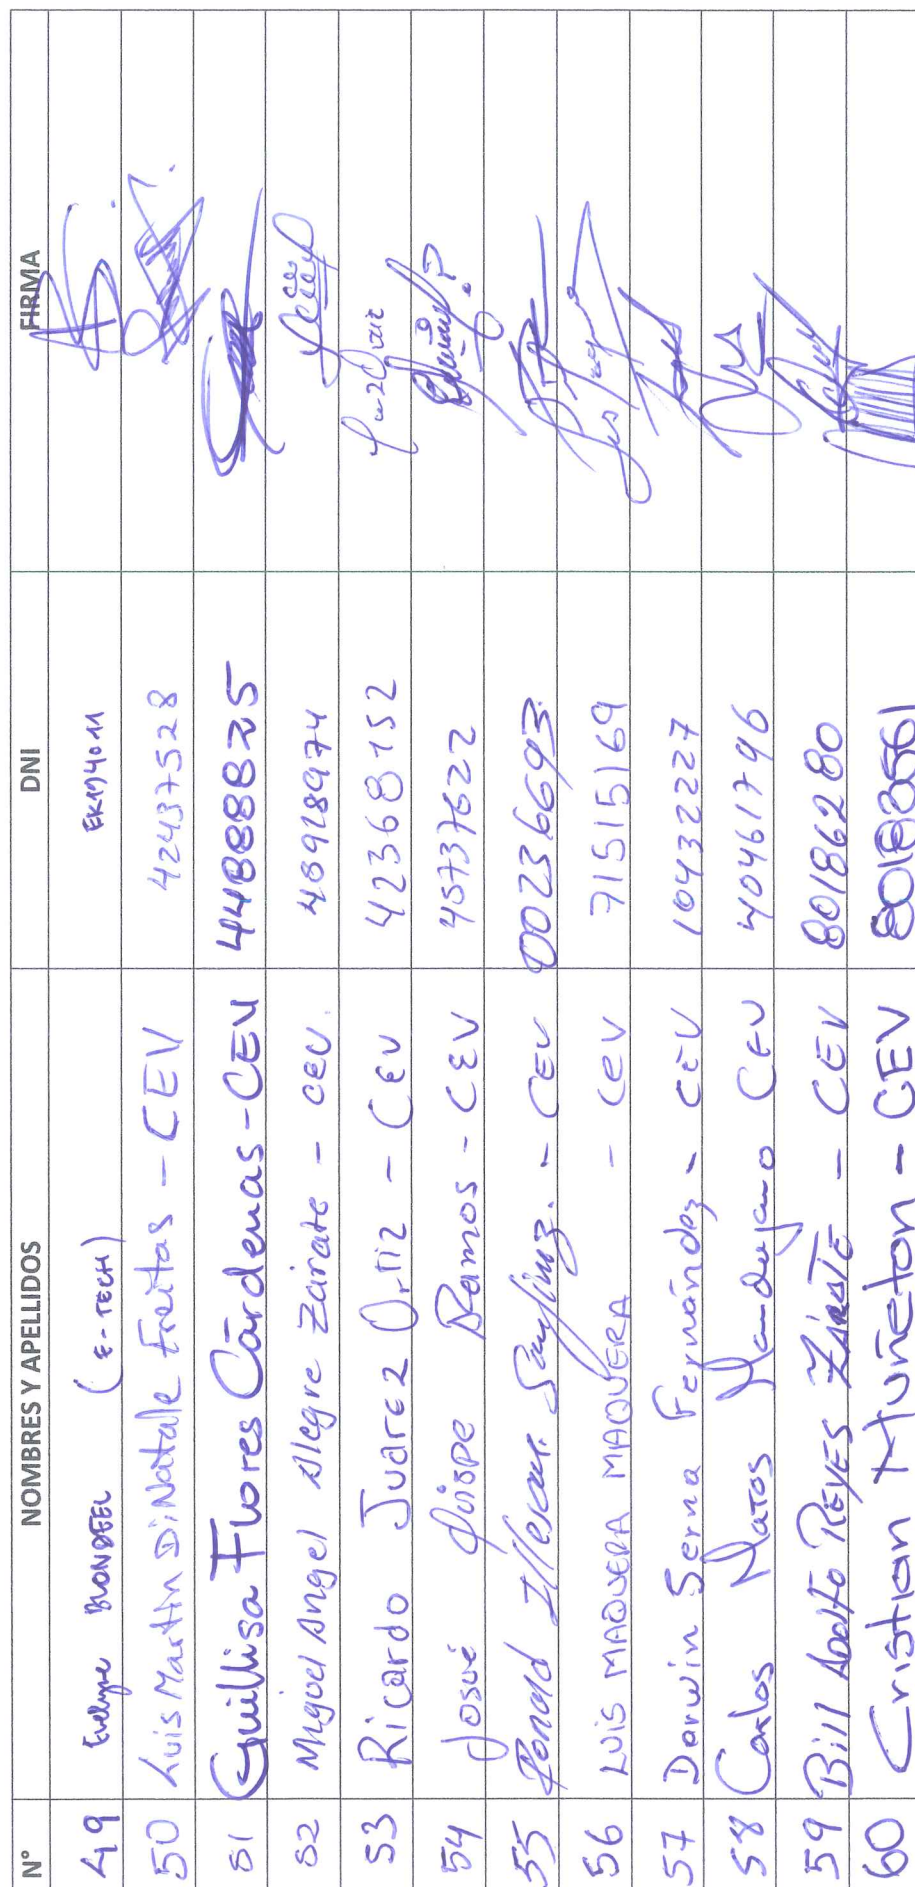 N° NOMBRES Y APELLIDOS DNI FIRMA
49 Evelyne BLONDEEL (E-TECH) EK194011
50 Luis Martin DiNatale Freitas - CEV 42437528
51 Guillisa Flores Cárdenas - CEV 4488825
52 Miguel Angel Alegre Zárate - CEV. 48928974
53 Ricardo Juarez Ortiz - CEV 42368152
54 Josué Quispe Ramos - CEV 45737622
55 Ronald - CEV 00236693
56 LUIS MAQUERA MAQUERA - CEV 71515169
57 Darwin Serna Fernández - CEV 10432227
58 Carlos Matos Mandujano CEV 40461796
59 Bill Adolfo REYES ZÁRATE - CEV 80186280
60 Cristian Muñeton - CEV 80183561